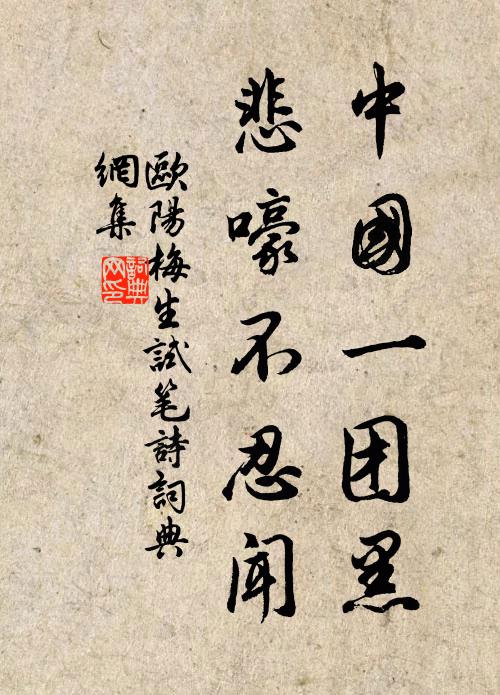 中國一团黑
悲嚎不忍闻
歐陽梅生試笔詩詞典
網集
詞典
网印